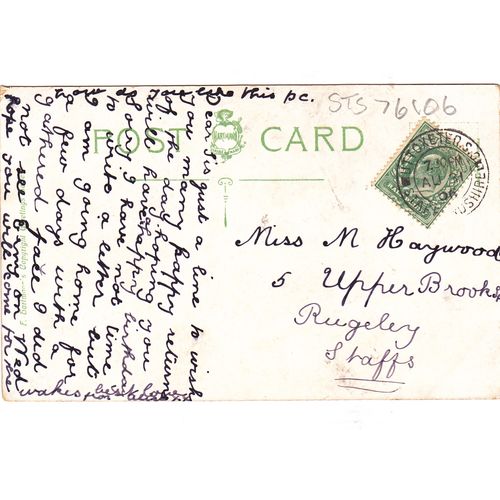 How do you like this pc.
STS 76106
POST CARD
Dear Sis just a line to wish
you many happy returns
of the day hoping you
will have happy birthday
Sorry I have not time
to write a letter but
I am going home for
a few days with a
gathered face I did
not see on Wed
hope you will come for the
wakes best love
from
Miss M Haywood
5 Upper Brook
Rugeley
Staffs
UTTOXETER
PM
AU